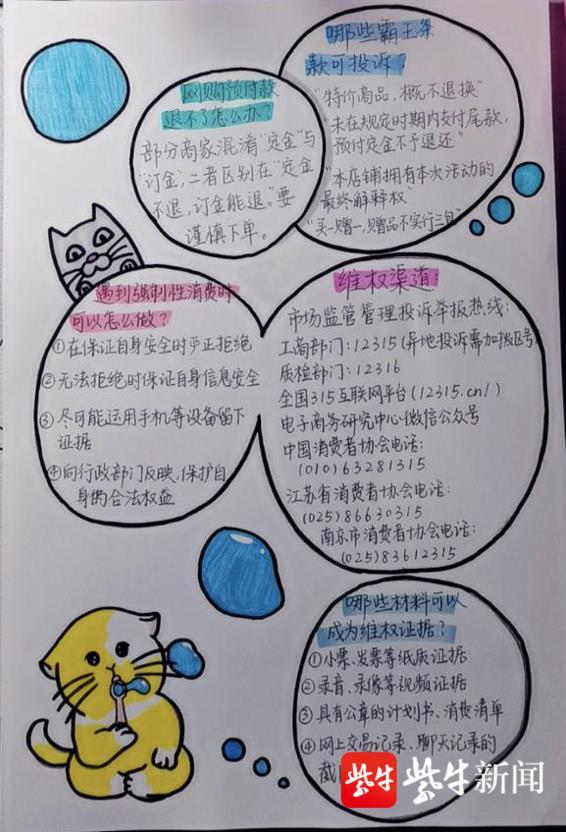 哪些霸王条
款可投诉？
"特价商品，概不退换"
"未在规定时期内支付尾款，
预付定金不予退还"
"本店铺拥有本次活动的
最终解释权"
"买一赠一，赠品不实行三包"
网购预付款
退不了怎么办？
部分商家混淆"定金"与
"订金"，二者区别在"定金
不退，订金能退。"要
谨慎下单。
遇到强制性消费时
可以怎么做？
①在保证自身安全时严正拒绝
②无法拒绝时保证自身信息安全
③尽可能运用手机等设备留下
证据
④向行政部门反映，保护自
身的合法权益
维权渠道：
市场监管管理投诉举报热线：
工商部门：12315(异地投诉需加拨区号)
质检部门：12316
全国315互联网平台(12315.cn/)
电子商务研究中心微信公众号
中国消费者协会电话：
(010)63281315
江苏省消费者协会电话：
(025)86630315
南京市消费者协会电话：
(025)83612315
哪些材料可以
成为维权证据？
①小票、发票等纸质证据
②录音、录像等视频证据
③具有公章的计划书、消费清单
④网上交易记录、聊天记录的
截
紫牛 紫牛新闻